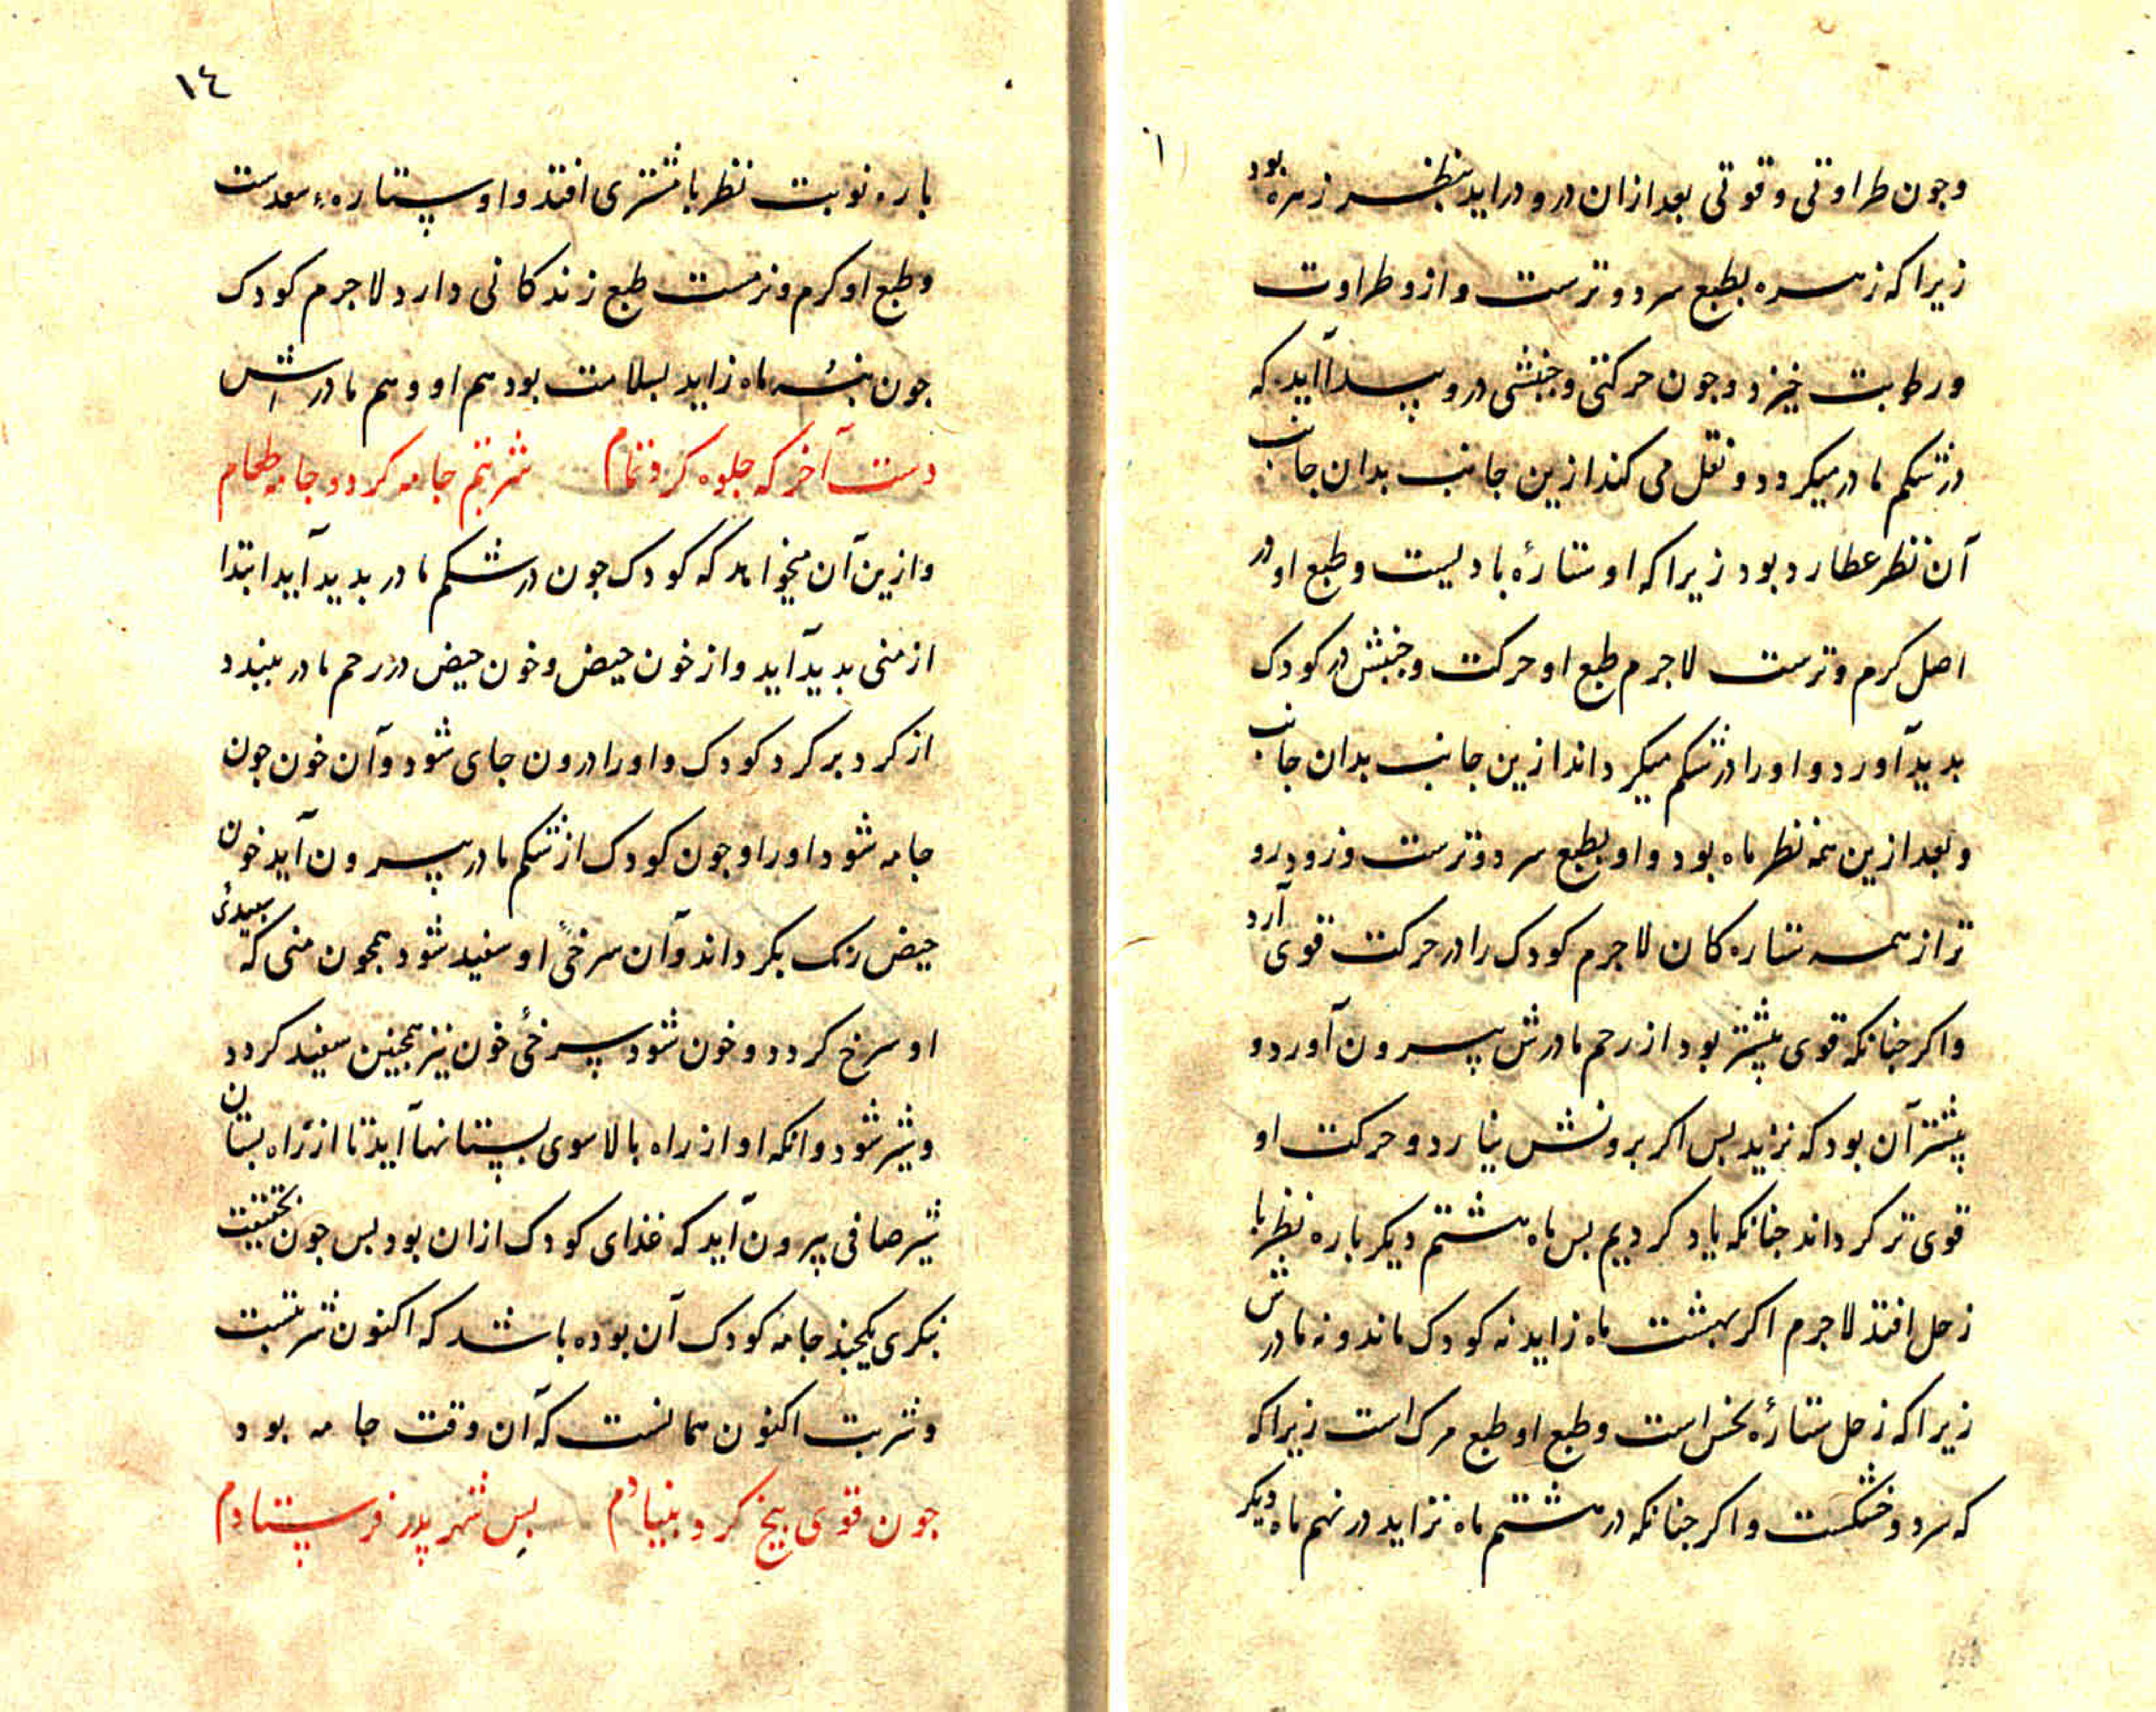 وجون طراوتی وقوتی بعد ازان درو دراید بنظر زهره بود
زیراکه زهره بطبع سرد وترست وازو طراوت
ورطوبت خیزد وجون حرکتی وجنبشی درو پیدا آید که
در شکم مادر میکردد ونقل می کند ازین جانب بدان جانب
آن نظر عطارد بود زیراکه او ستارهٔ بادیست وطبع او در
اصل کرم وترست لاجرم طبع او حرکت وجنبش در کودک
بدید آورد واورا در شکم میکرداند ازین جانب بدان جانب
وبعد ازین همه نظر ماه بود واو بطبع سرد وترست وزودرو
تر از همه ستاره کان لاجرم کودک را در حرکت قوی آرد
واکر جنانکه قوی بیشتر بود از رحم مادرش بیرون آورد و
بیشتر آن بود که نزید بس اکر برونش نیارد وحرکت او
قوی تر کرداند جنانکه یاد کردیم بس ماه هشتم دیکر باره نظر با
زحل افتد لاجرم اکر بهشت ماه زاید نه کودک ماند ونه مادرش
زیراکه زحل ستارهٔ نحس است وطبع او طبع مرک است زیراکه
که سرد وخشکست واکر جنانکه در هشتم ماه نزاید در نهم ماه دیکر
١٤
باره نوبت نظر با مشتری افتد واو ستارهء سعدست
وطبع او کرم ونرمست طبع زندکانی دارد لاجرم کودک
جون بنه ماه زاید بسلامت بود هم او وهم مادرش
دست آخر که جلوه کرد تمام شربتم جامه کرد وجامه طعام
وازین آن میخواهد که کودک جون در شکم مادر بدید آید ابتدا
از منی بدید آید واز خون حیض وخون حیض در رحم مادر ببندد
از کرد بر کرد کودک واورا درون جای شود وآن خون جون
جامه شود اورا وجون کودک از شکم مادر بیرون آید خون
حیض رنک بکرداند وآن سرخیٔ او سفید شود همجون منی که سبیدیٔ
او سرخ کردد وخون شود سرخیٔ خون نیز همجنین سفید کردد
وشیر شود وانکه او از راه بالا سوی بستانها آید تا از راه بستان
شیر صافی بیرون آید که غذای کودک ازان بود بس جون بحقیقت
بنکری یکجند جامهٔ کودک آن بوده باشد که اکنون شربتست
وشربت اکنون همانست که آن وقت جامه بود
جون قوی بیخ کرد بنیادم بس بشهر بدر فرستادم